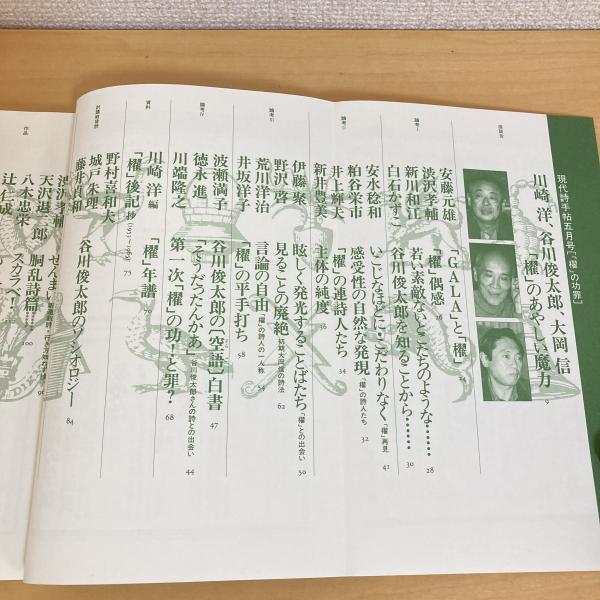 現代詩手帖五月号[「櫂」の功罪]
座談会
川崎 洋、谷川俊太郎、大岡 信
「櫂」のあやしい魔力 9
論考Ⅰ
安藤元雄 「GALA」と「櫂」 24
渋沢孝輔 「櫂」偶感 28
新川和江 若い素敵ないとこたちのような……
白石かずこ 谷川俊太郎を知ることから…… 30
論考Ⅱ
安水稔和 いこじなほどに・こだわりなく 「櫂」再見 41
粕谷栄市 感受性の自然な発現 「櫂」の詩人たち 32
井上輝夫 「櫂」の連詩人たち 34
新井豊美 主体の純度 36
論考Ⅲ
伊藤 聚 眩しく発光することばたち 「櫂」との出会い 50
野沢 啓 見ることの廃絶 初期大岡信の詩法 62
荒川洋治 言論の自由 「櫂」の詩人の一人称 54
井坂洋子 「櫂」の平手打ち 58
論考Ⅳ
波瀬満子 谷川俊太郎の「空語」白書 47
徳永 進 「そうだったんかあ」 谷川俊太郎さんの詩との出会い 44
川端隆之 第一次「櫂」の功!と罪? 68
資料
川崎 洋 編 「櫂」年譜 70
「櫂」後記 抄 75
討議戦後詩
野村喜和夫
城戸朱理
藤井貞和 谷川俊太郎のソシオロジー 84
作品
天沢退二郎 胴乱詩篇 100
八木忠栄 スカラベ!
辻 仁成